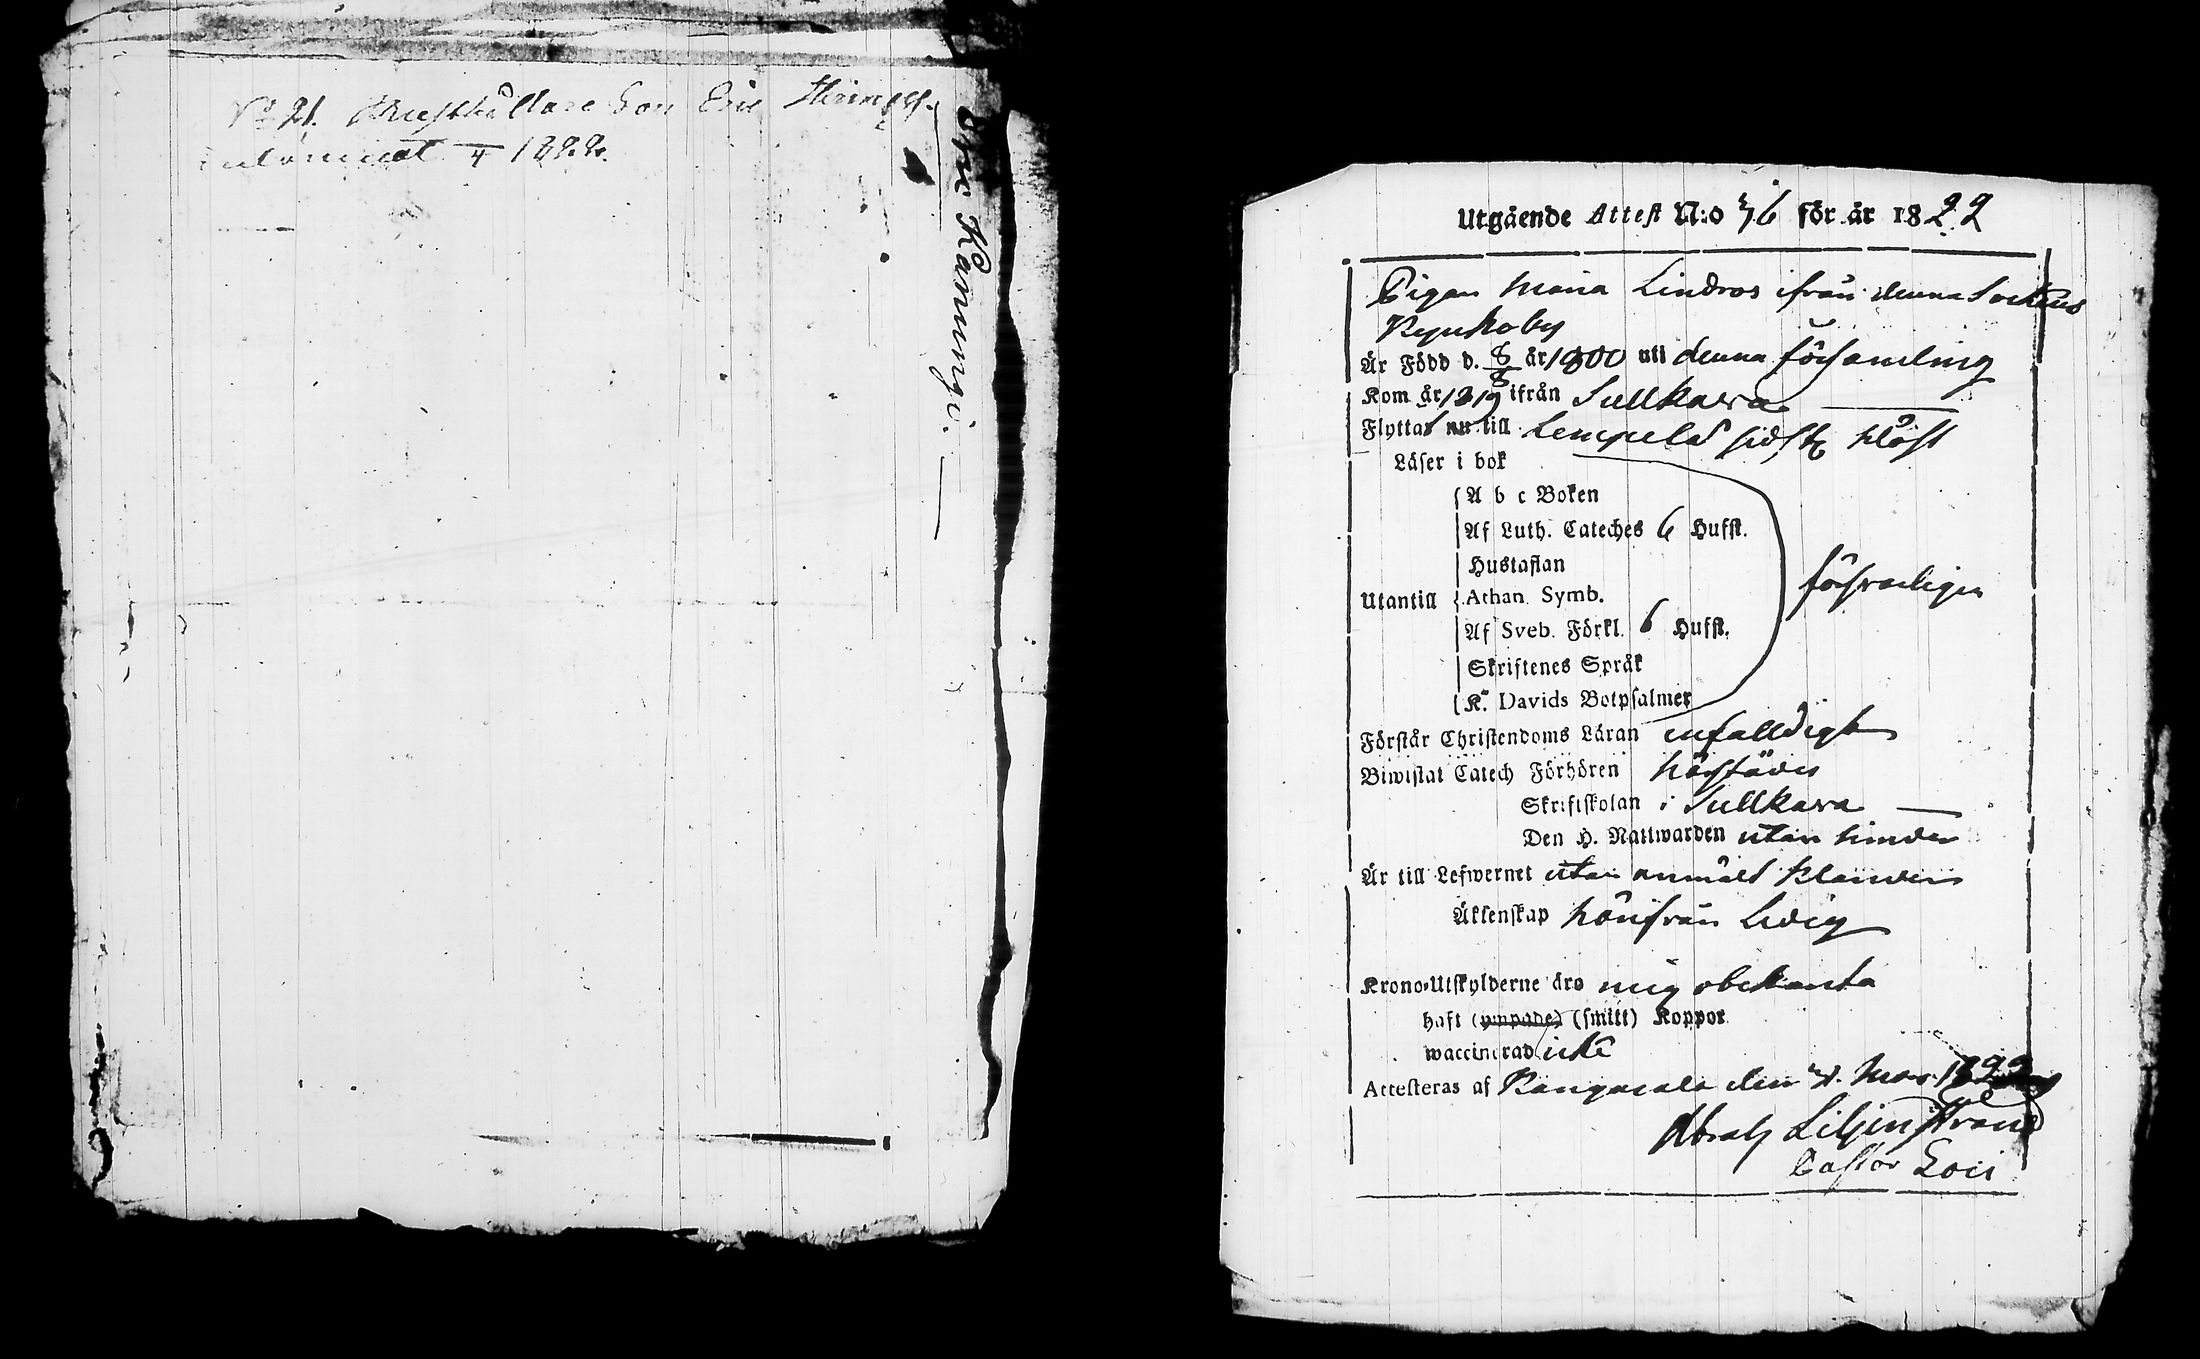 No 21. Son Eric
inlämnat 4 1822.
Kannungi.
Utgående Attest N:o 76 för år 1822
Pigan Maria Lindros ifrån denna Sockens
Kyrkoby
Är Född d. 8/8 år 1800 uti denna församling
Kom år 1819 ifrån Sullkava
Flyttar nu till Lempelä sidstl höst
Läser i bok
A b c Boken
Af Luth. Cateches 6 Hufst.
Hustaflan
Utantill Athan. Symb.
försvarligen
Af Sveb. Förkl. 6 Hufst.
Skriftenes Språk
K. Davids Botpsalmer
Förstår Christendoms Läran enfalldigt
Biwistat Catech Förhören härstädes
Skriftskolan i Sullkava
Den H. Nattwarden utan hinder
Är till Lefwernet utan anmält klander
Äktenskap härifrån Ledig
Krono-Utskylderne äro mig obekanta
haft (ympade) (smitt) Koppor
waccinerad icke
Attesteras af Kangasala den Mars 1822
Abrah Liljenstrand
Pastor Loci